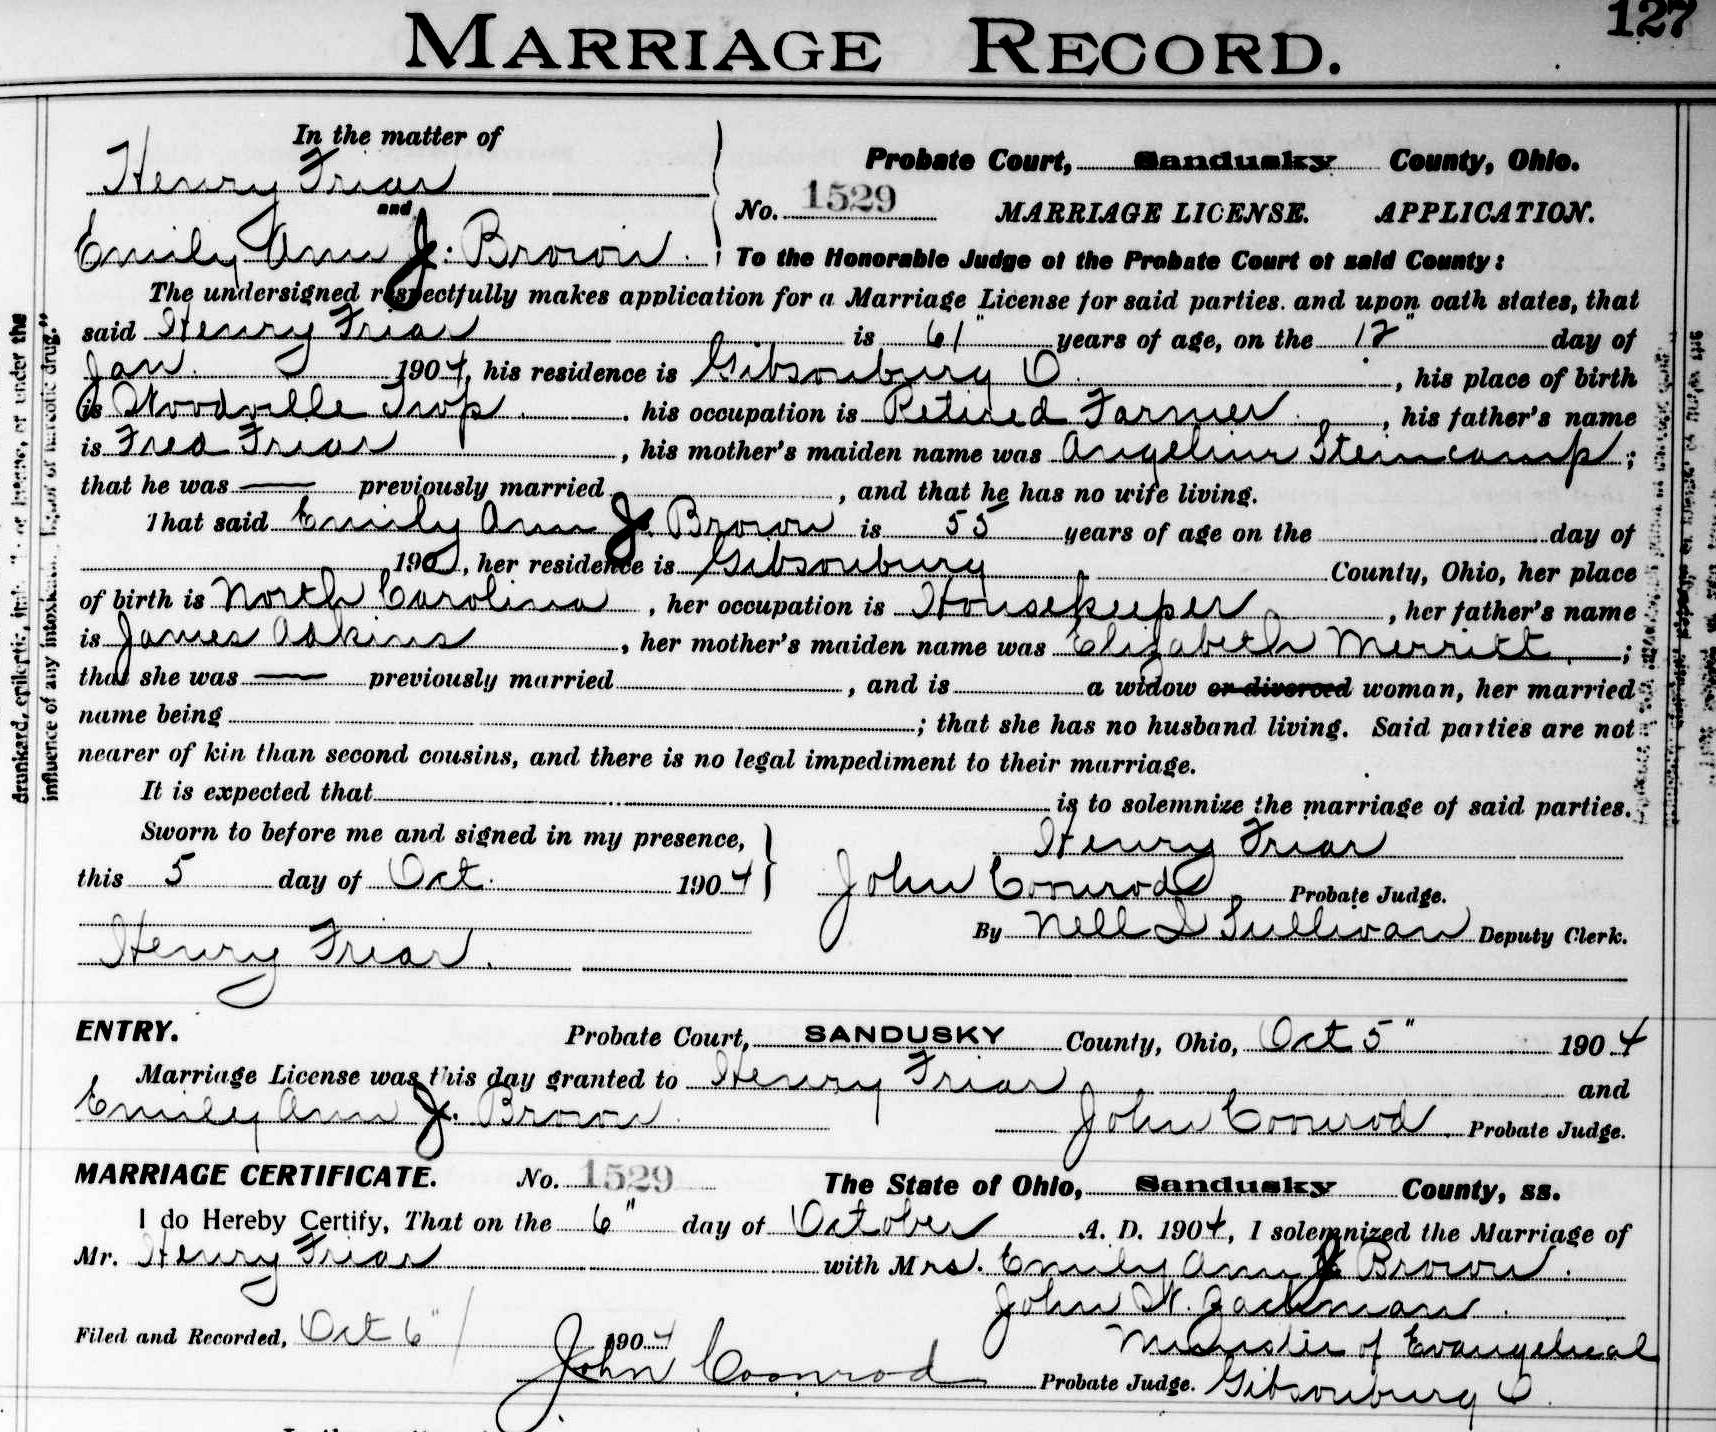 127
MARRIAGE RECORD.
In the matter of
Henry Friar
and
Emily Ann J. Brown.
Probate Court, Sandusky County, Ohio.
No. 1529 MARRIAGE LICENSE. APPLICATION.
To the Honorable Judge of the Probate Court of said County:
The undersigned respectfully makes application for a Marriage License for said parties. and upon oath states, that
said Henry Friar is 61" years of age, on the 12" day of
Jan. 1904, his residence is Gibsonburg O. , his place of birth
is Woodville Twp. his occupation is Retired Farmer. , his father's name
is Fred Friar , his mother's maiden name was Angeline Steincamp ;
that he was — previously married , and that he has no wife living.
That said Emily Ann J. Brown is 55 years of age on the day of
190 , her residence is Gibsonburg County, Ohio, her place
of birth is North Carolina , her occupation is Housekeeper , her father's name
is James Adkins , her mother's maiden name was Elizabeth Merritt. ;
that she was — previously married , and is a widow or divorced woman, her married
name being ; that she has no husband living. Said parties are not
nearer of kin than second cousins, and there is no legal impediment to their marriage.
It is expected that is to solemnize the marriage of said parties.
Sworn to before me and signed in my presence,
this 5 day of Oct. 1904
Henry Friar
John Coonrod Probate Judge.
By Nell I Sullivan Deputy Clerk.
Henry Friar.
ENTRY. Probate Court, SANDUSKY County, Ohio, Oct 5" 1904
Marriage License was this day granted to Henry Friar and
Emily Ann J. Brown. John Coonrod Probate Judge.
MARRIAGE CERTIFICATE. No. 1529 The State of Ohio, Sandusky County, ss.
I do Hereby Certify, That on the 6" day of October A. D. 1904, I solemnized the Marriage of
Mr. Henry Friar with Mrs. Emily Ann J Brown.
John W. Zachman.
Filed and Recorded, Oct 6" 1904 Minister of Evangelical
John Coonrod Probate Judge. Gibsonburg O.
drunkard, epileptic, or insane, or under the
influence of any intoxicating liquor or narcotic drug."